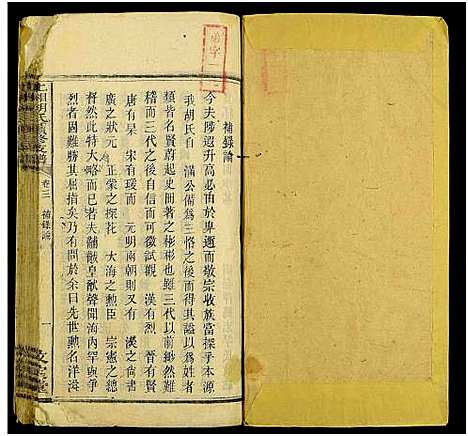 補錄論
今夫陟遐升高必由於卑邇而敬宗收族當探乎本源
我胡氏自 滿公備為三恪之後由是得其謚以為姓
類皆名賢蔚起史冊著之彬彬也雖三代以前緜然難
稽而三代之後自信而可徵試觀 漢有烈 晉有賢
唐有杲 宋有瑗而 元明兩朝則又有 漢之衡
廣之狀元 正榮之探花 大海之勳臣 宗憲之總
督然此特大略而已若夫黼黻皇猷聲聞海內罕與爭
烈者固難勝其屈指矣乃有問於余曰先世勳名洋溢
上湘胡氏續修支譜
卷三 補錄論 一
文定堂